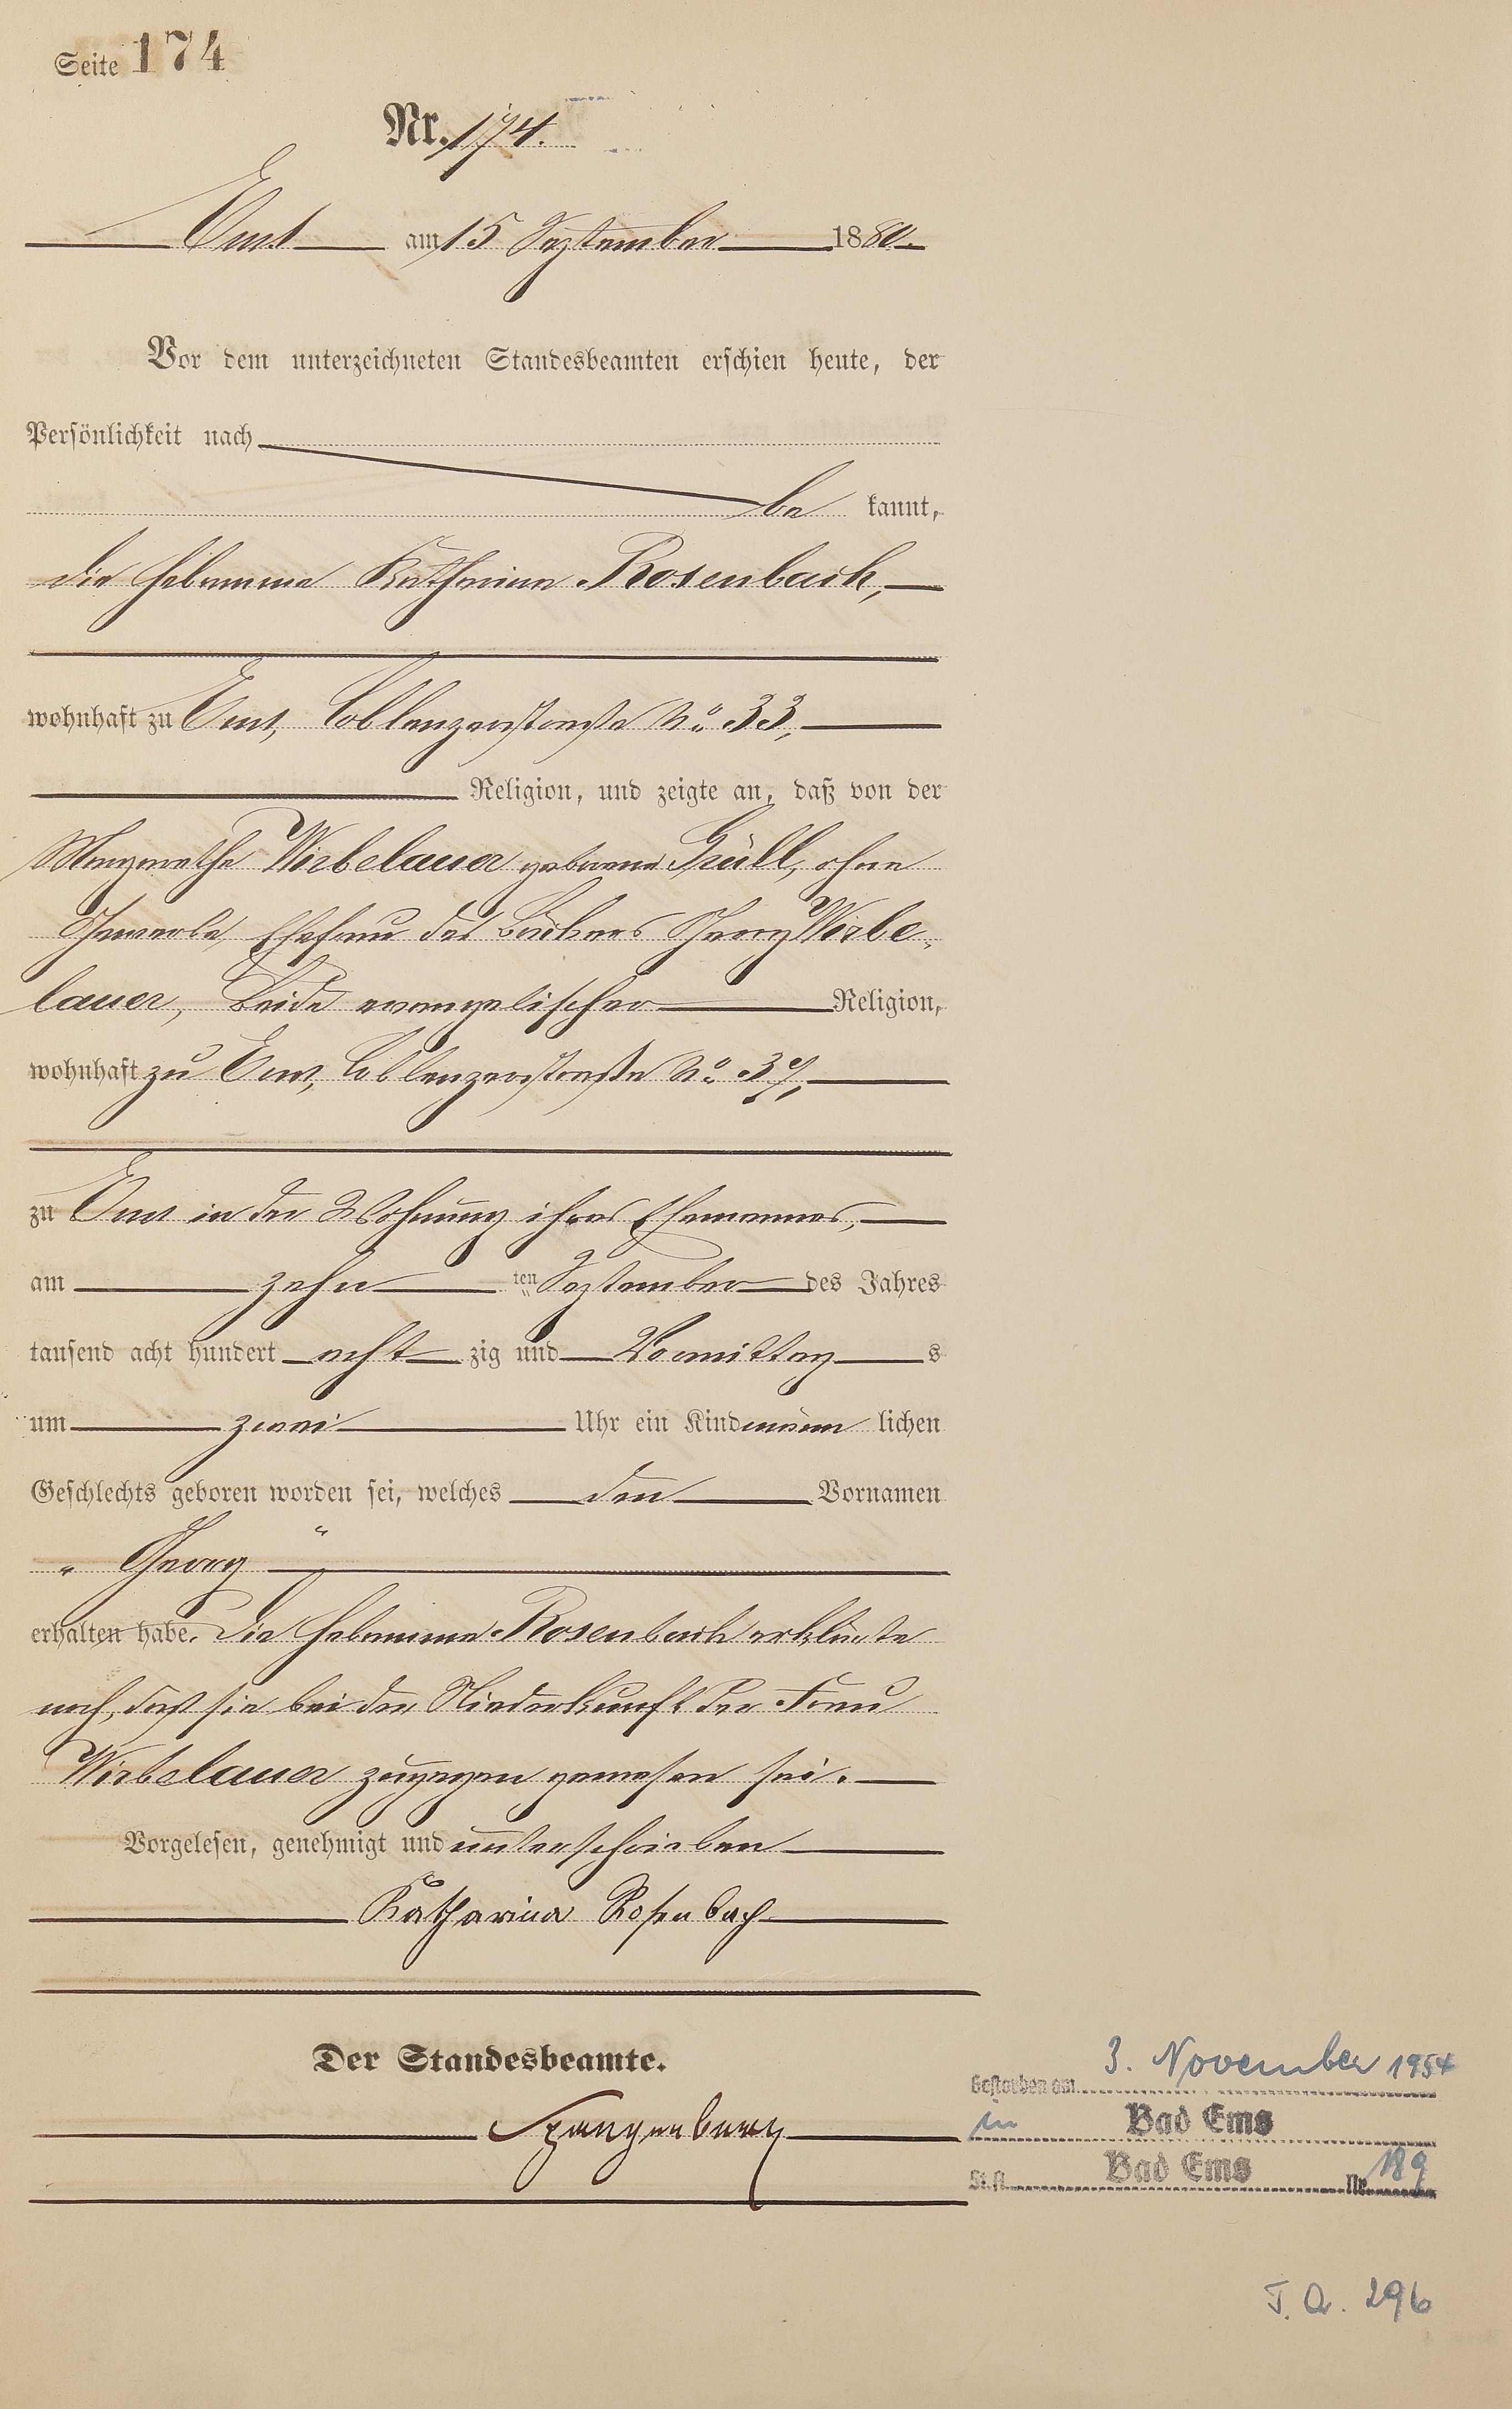 Seite 174
Nr. 174.
Ems am 15 September 1880.
Vor dem unterzeichneten Standesbeamten erschien heute, der
Persönlichkeit nach
be kannt,
die Hebamme Katharina Rosenbach,
wohnhaft zu Ems, Coblenzerstraße No. 33,
Religion, und zeigte an, daß von der
Margarethe Wirbelauer geborene Grüll, ohne
Gewerbe, Ehefrau des Bäckers Georg Wirbe-
lauer, Beide evangelischer Religion,
wohnhaft zu Ems, Coblenzerstraße No. 37,
zu Ems in der Wohnung ihres Ehemannes,
am zehn ten September des Jahres
tausend acht hundert acht zig und Vormittag s
um zwei Uhr ein Kind männ lichen
Geschlechts geboren worden sei, welches den Vornamen
„ Georg “
erhalten habe. Die Hebamme Rosenbach erklärte
noch, daß sie bei der Niederkunft der Frau
Wirbelauer zugegen gewesen sei.
Vorgelesen, genehmigt und unterschrieben
Katharina Rosenbach
Der Standesbeamte.
Spangenberg
Gestorben am 3. November 1954
in Bad Ems
St.A. Bad Ems Nr. 189
J. Q. 296